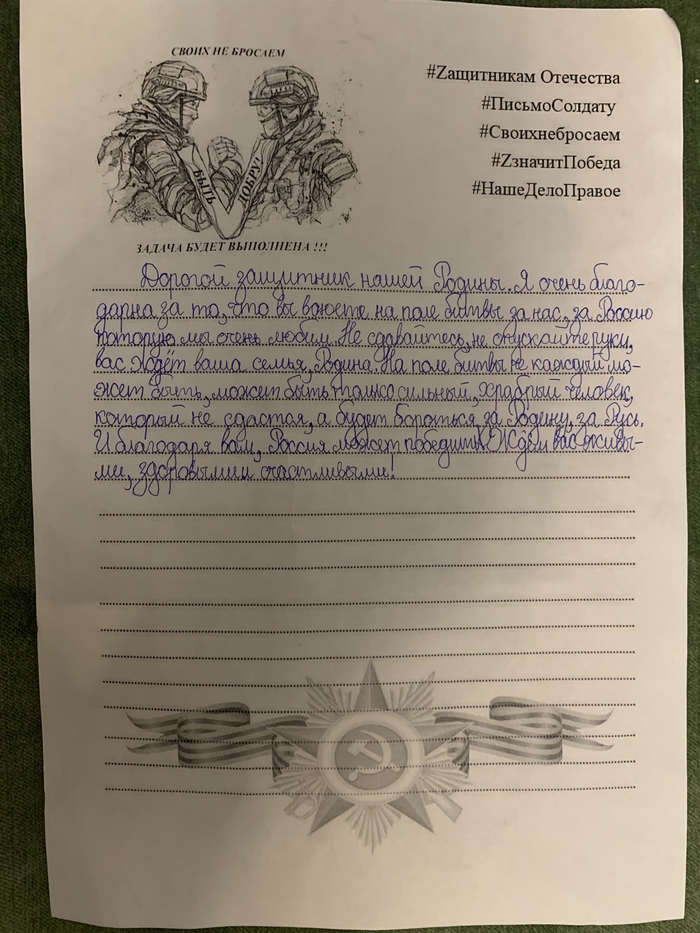 СВОИХ НЕ БРОСАЕМ
БЫТЬ ДОБРУ!
ЗАДАЧА БУДЕТ ВЫПОЛНЕНА !!!
#Zащитникам Отечества
#ПисьмоСолдату
#Своихнебросаем
#ZзначитПобеда
#НашеДелоПравое
Дорогой защитник нашей Родины. Я очень благо-
дарна за то, что вы воюете на поле битвы за нас, за Россию
которую мы очень любим. Не сдавайтесь, не опускайте руки,
вас ждёт ваша семья, Родина. На поле битвы не каждый мо-
жет быть, может быть только сильный, храбрый человек,
который не сдастся, а будет бороться за Родину, за Русь.
И благодаря вам, Россия может победить! Ждём вас живы-
ми, здоровыми и счастливыми!